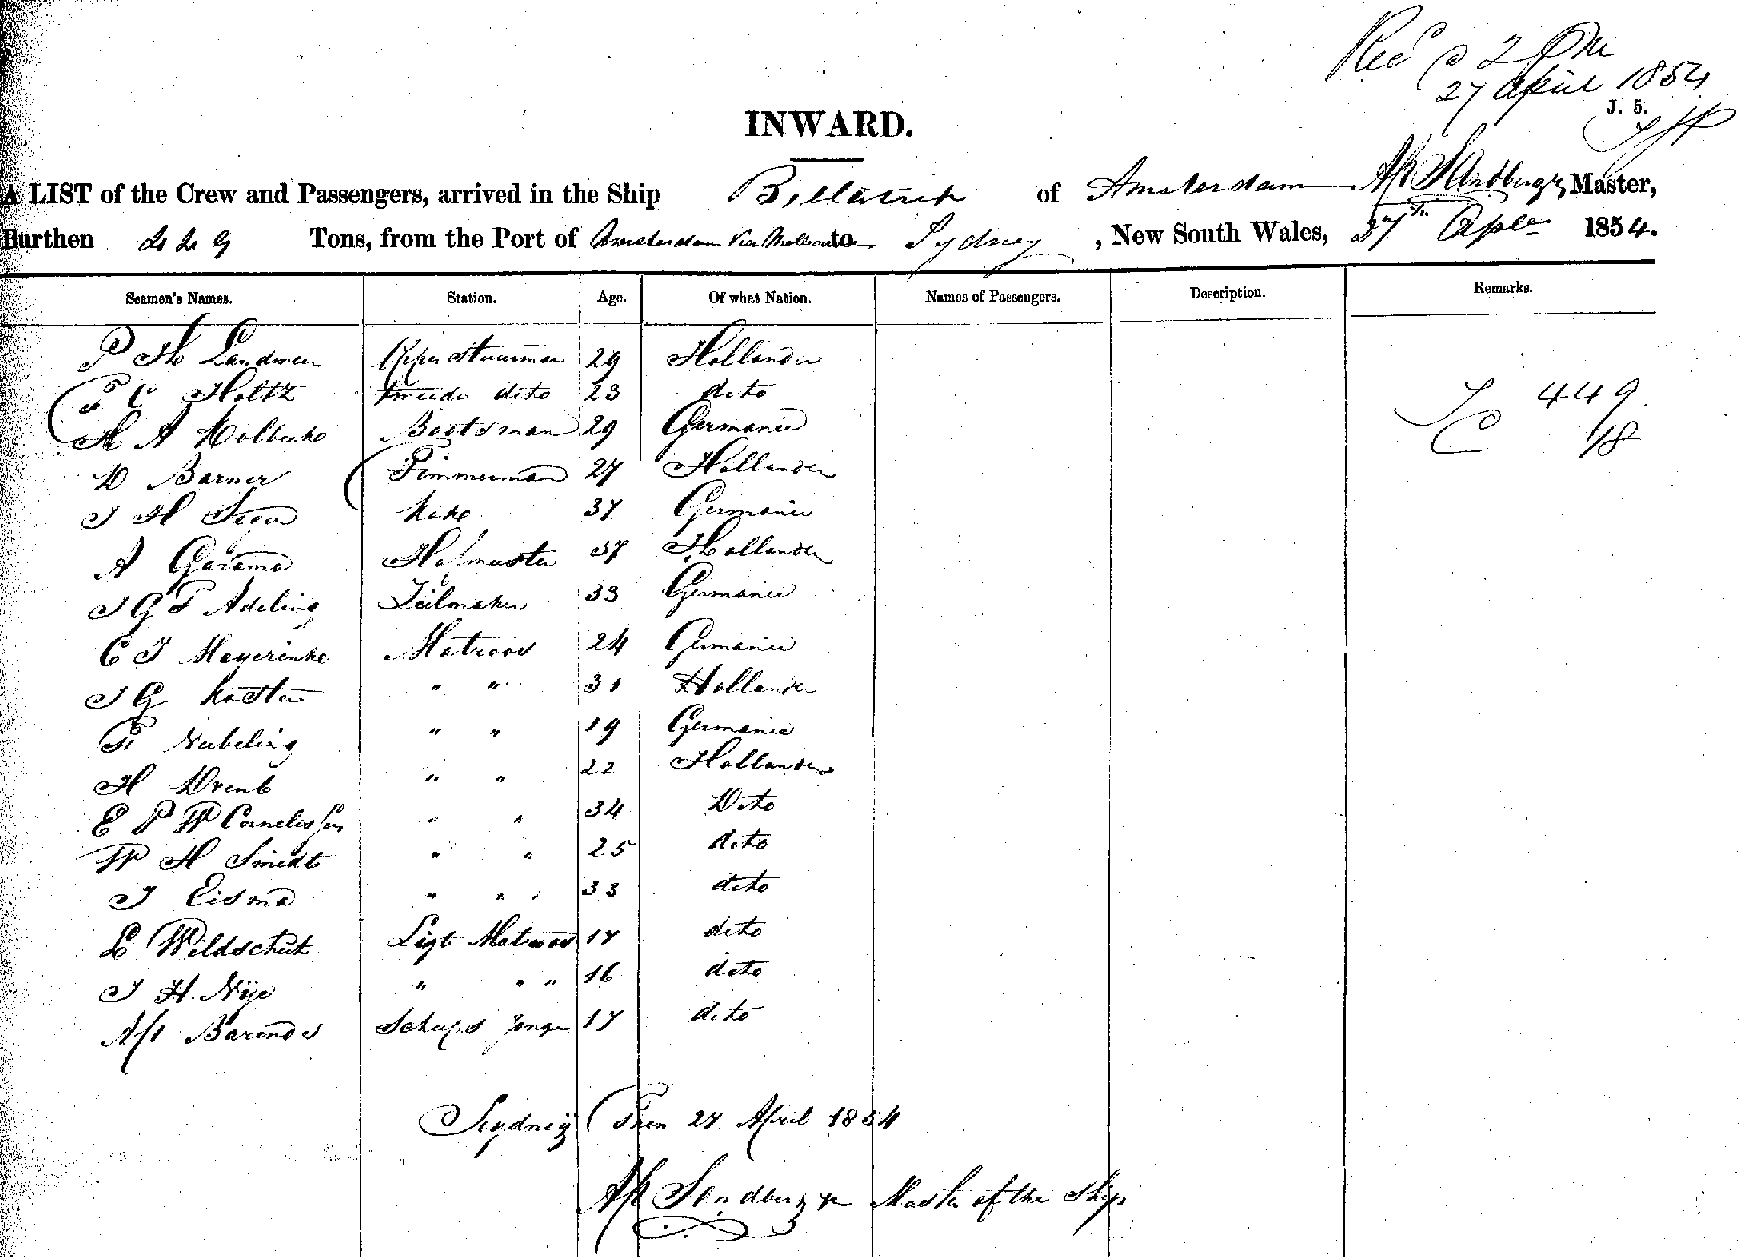 Recd @ 2 PM
27 April 1854
J. 5.
INWARD.
A LIST of the Crew and Passengers, arrived in the Ship of Amsterdam Master,
Burthen 449 Tons, from the Port of Amsterdam via to Sydney, New South Wales, 27th Apl 1854.
Seamen's Names. Station. Age. Of what Nation. Names of Passengers. Description. Remarks.
P Landman Opper Stuurman 29 Hollander
C Holtz tweede dito 23 dito
H A Bootsman 29 Germanie
D Barmer Timmerman 27 Hollander
J H Koke 37 Germanie
A 37 Hollander
J G F Adeling Zeilmaker 33 Germanie
C J Meyerinke Matroos 24 Germanie
J G Kosten " " 31 Hollander
F Nubeling " " 19 Germanie
H " " 22 Hollander
E P W Cornelissen " " 34 Dito
W H Smidt " " 25 dito
J Eisma " " 33 dito
L Wildschut Ligt Matroos 17 dito
J H. Nije " " " 16 dito
Barends Scheeps Jonge 17 dito
449
18
Sydney Den 27 April 1854
Master of the Ship